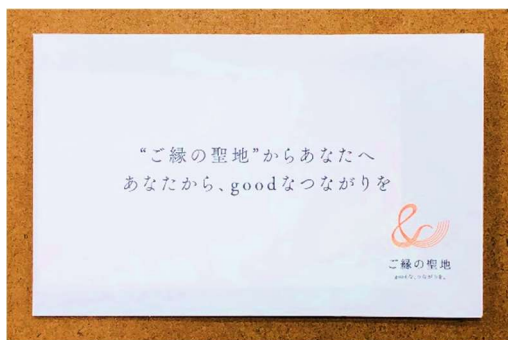 “ご縁の聖地”からあなたへ
あなたから、goodなつながりを
&
ご縁の聖地
goodな、つながりを。